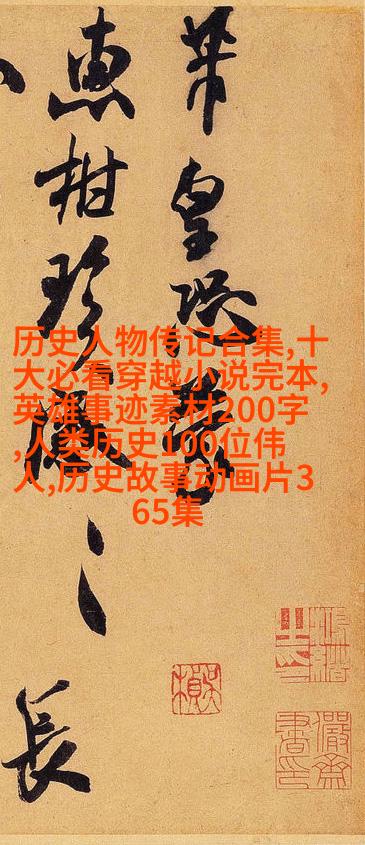 历史人物传记合集,十
大必看穿越小说完本,
英雄事迹素材200字
,人类历史100位伟
人,历史故事动画片3
65集
芾皇恐蒙
惠柑珍感〻長